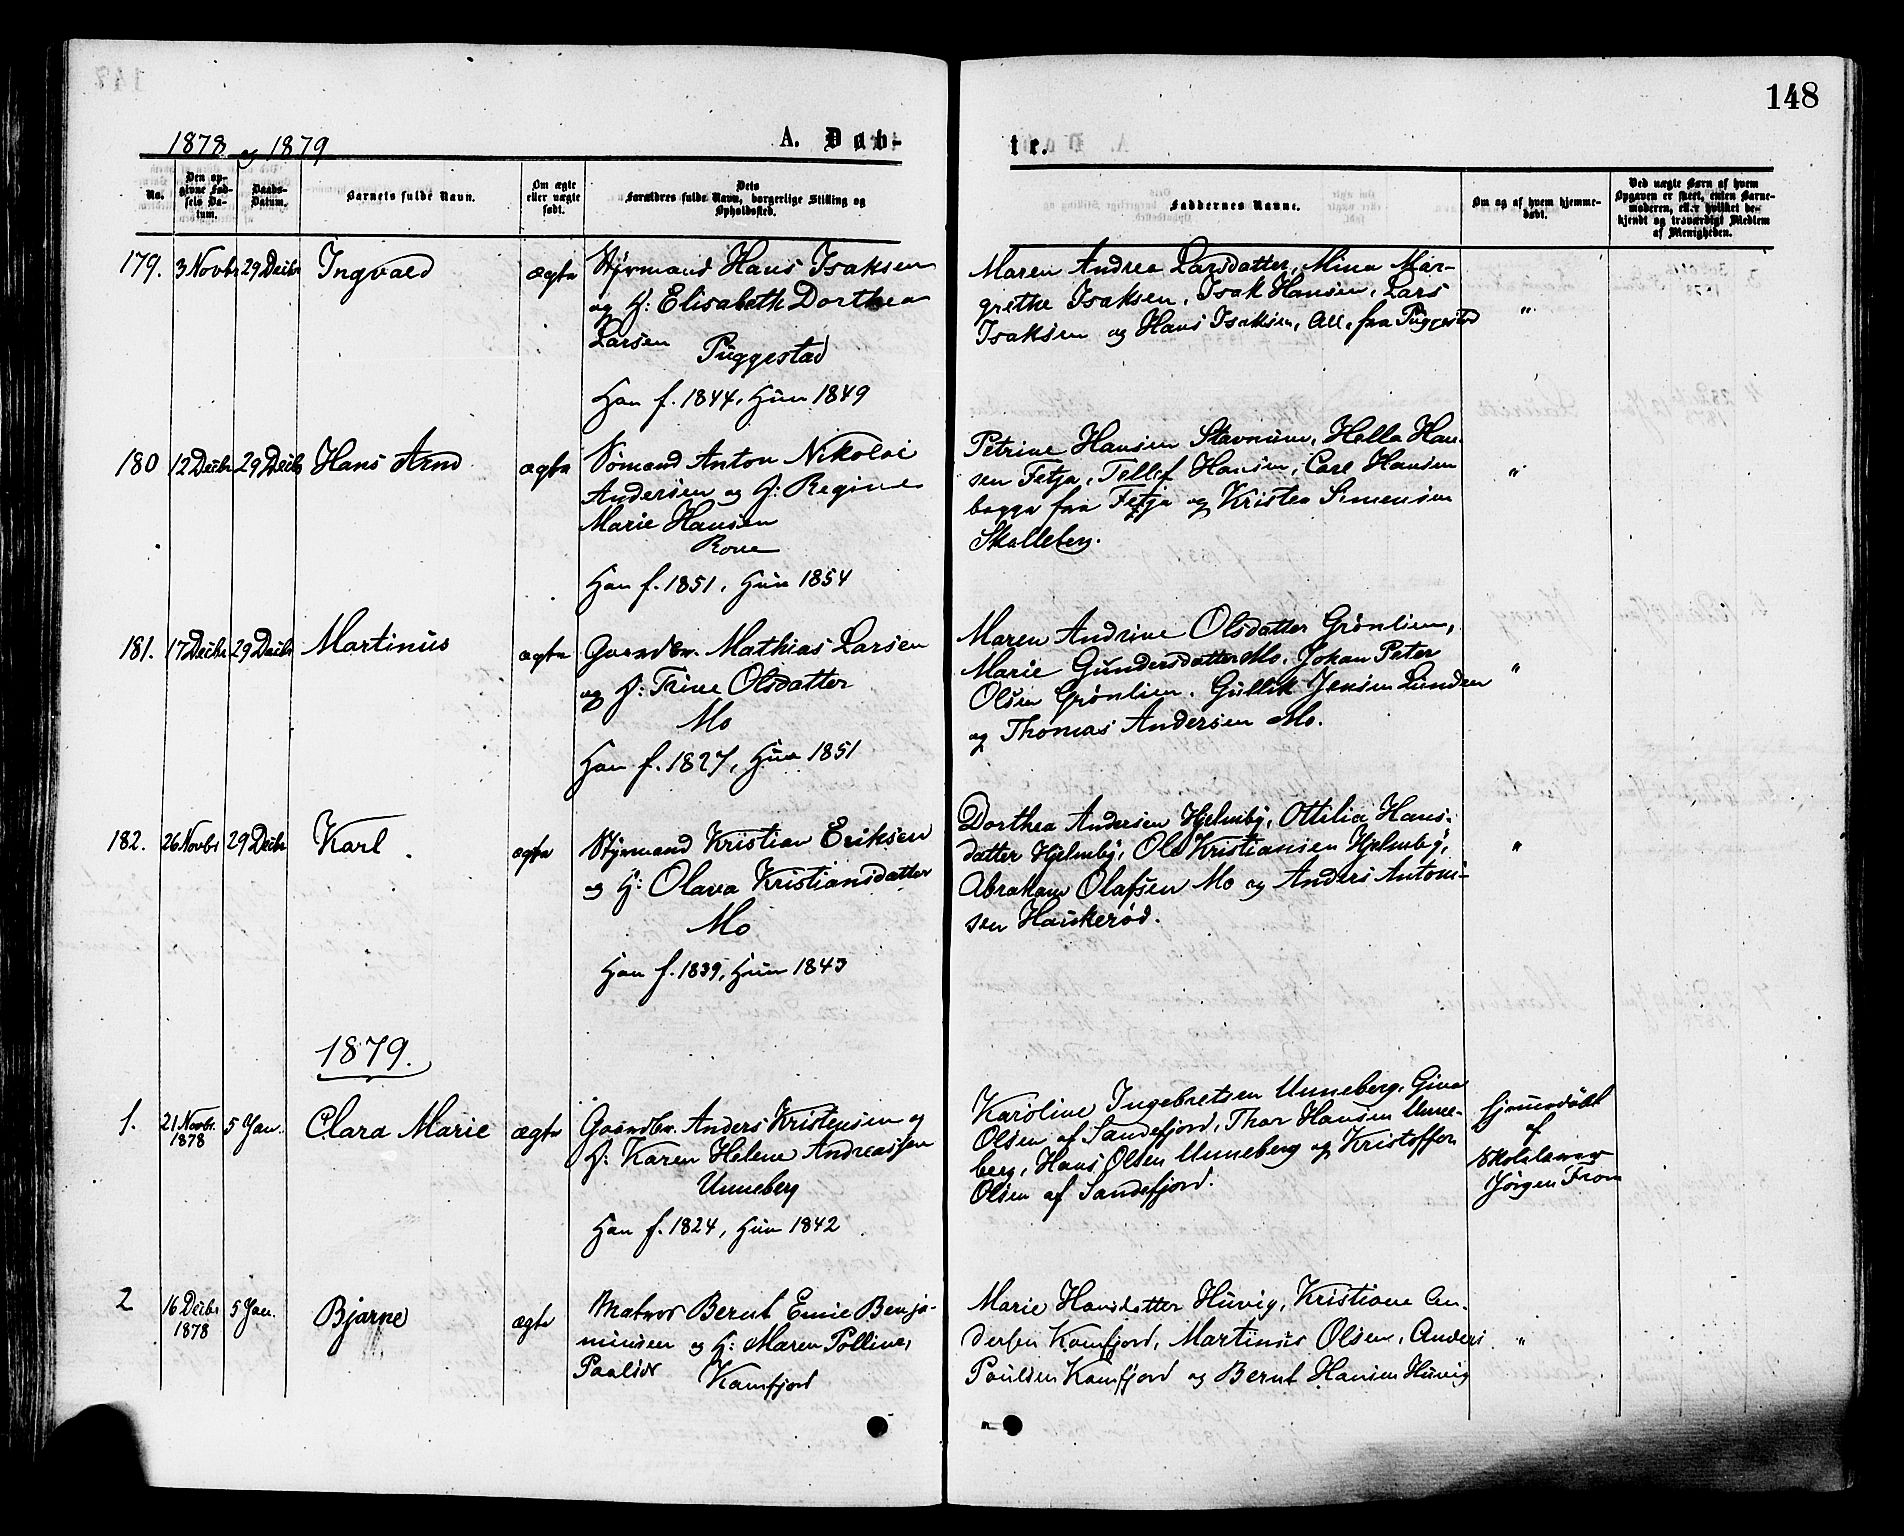 148
1878 og 1879
A. Døb-
te.
No.
Den op-
givne Fød-
sels Da-
tum.
Daabs-
Datum.
Barnets fulde Navn.
Om ægte
eller uægte
født.
Dets
Forældres fulde Navn, borgerlige Stilling og
Opholdssted.
Faddernes Navne.
Om og af hvem hjemme-
døbt.
Ved uægte Børn af hvem
Opgaven er skeet, enten Barne-
moderen, eller hvilket be-
kjendt og troværdigt Medlem
af Menigheden.
179. 3 Novbr 29 Decbr Ingvald ægte
Styrmand Hans Isaksen
og H: Elisabeth Dorthea
Larsen
Puggestad
Han f. 1844, Hun 1849
Maren Andrea Larsdatter, Mina Mar-
grethe Isaksen, Isak Hansen, Lars
Isaksen og Hans Isaksen, All. fra Puggestad
"
180 12 Decbr 29 Decbr Hans Arnd ægte
Sömand Anton Nikolai
Andersen og H: Regine
Marie Hansen
Rove
Han f. 1851, Hun 1854
Petrine Hansen Stavnum, Hella Han-
sen Fetja, Tellef Hansen, Carl Hansen
begge fra Fetja og Kristen Simensen
Skalleberg.
"
181. 17 Decbr 29 Decbr Martinus ægte
Gaardbr. Mathias Larsen
og H: Trine Olsdatter
Mo
Han f. 1827, Hun 1851
Maren Andrine Olsdatter Grønlien,
Marie Gundersdatter Mo, Johan Peter
Olsen Grønlien, Gullik Jensen Lunden
og Thomas Andersen Mo.
"
182. 26 Novbr 29 Decbr Karl ægte
Styrmand Kristian Eriksen
og H: Olava Kristiansdatter
Mo
Han f. 1839, Hun 1843
Dorthea Andersen Hjelmby, Ottilia Hans-
datter Hjelmby, Ole Kristiansen Hjelmby,
Abraham Olafsen Mo og Anders Antoni-
sen Haukerød.
"
1879.
1. 21 Novbr. 1878 5 Jan. Clara Marie ægte
Gaardbr. Anders Kristensen og
H: Karen Helene Andreassen
Unneberg
Han f. 1824, Hun 1842
Karoline Ingebretsen Unneberg, Gina
Olsen af Sandefjord, Thor Hansen Unne-
berg, Hans Olsen Unneberg og Kristoffer
Olsen af Sandefjord.
Hjemmedöbt
af
Skolelærer
Jörgen From
2 16 Decbr 1878 5 Jan. Bjarne ægte
Matros Bernt Emil Benja-
minsen og H: Maren Polline
Kamfjord
Marie Hansdatter Huvig, Kristiane An-
dersen Kamfjord, Martinus Olsen, Anders
Paulsen Kamfjord og Bernt Hansen Huvig
"